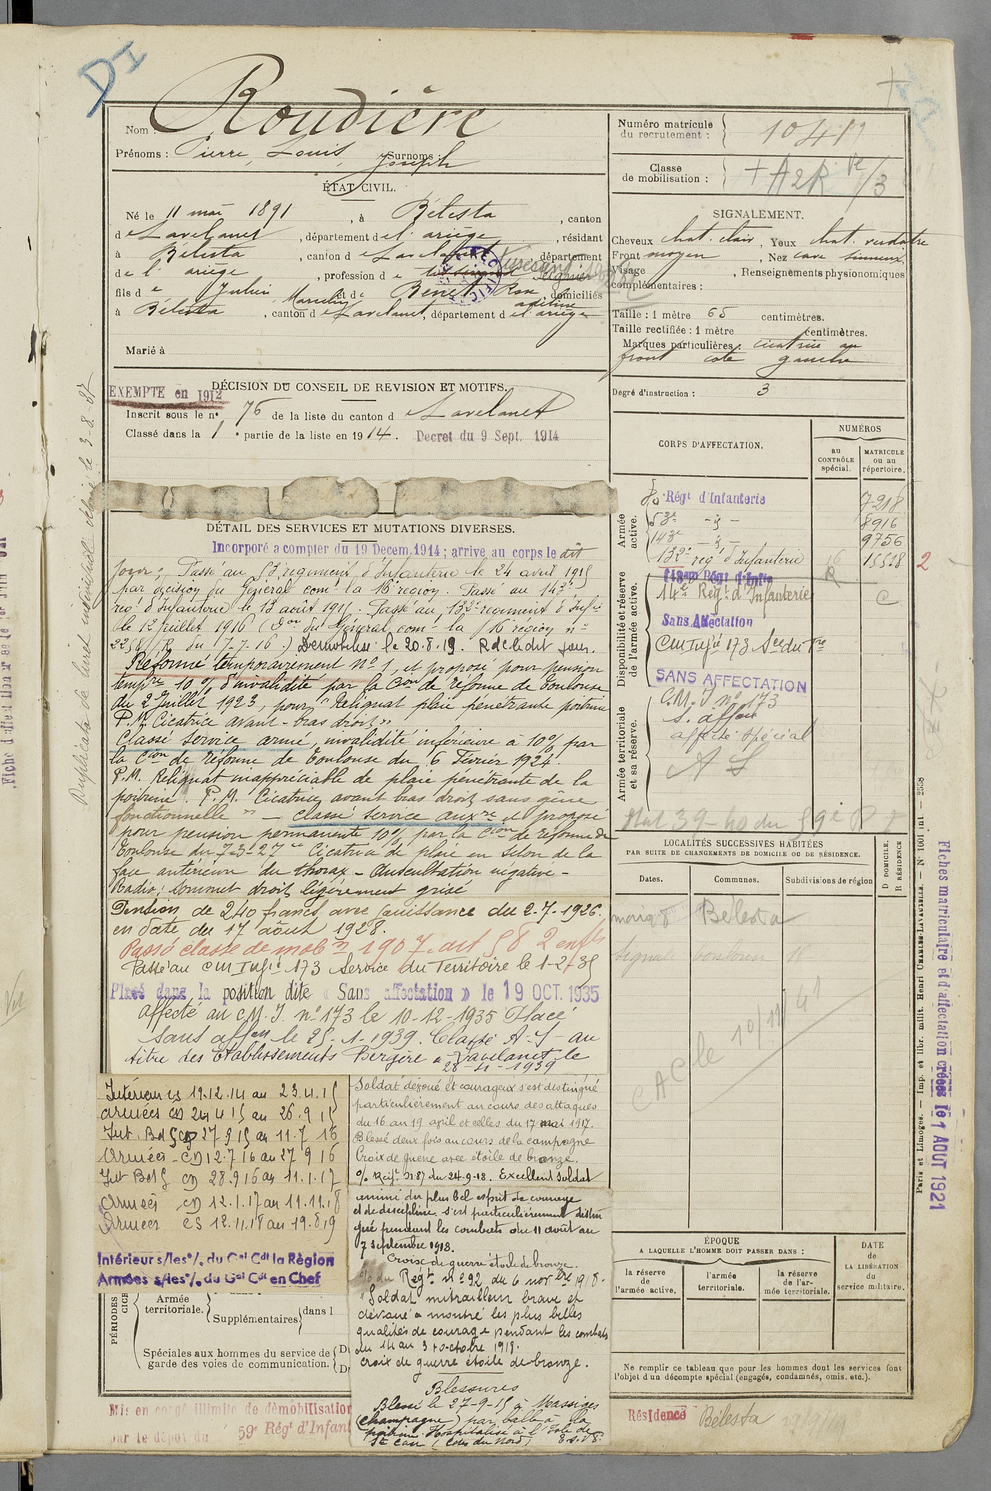 DI
Nom : Roudière
Prénoms : Pierre, Louis, Joseph Surnoms :
ÉTAT CIVIL.
Né le 11 mai 1891, à Bélesta, canton
de Lavelanet, département de l'ariège, résidant
à Bélesta, canton de Lavelanet, département
de l'ariège, profession de
fils de Julien Marcelin et de Benet Rose adeline, domiciliés
à Bélesta, canton de Lavelanet, département de l'ariège
Marié à
DÉCISION DU CONSEIL DE REVISION ET MOTIFS.
EXEMPTÉ en 1912
Inscrit sous le n° 76 de la liste du canton de Lavelanet
Classé dans la 1e partie de la liste en 1914. Decret du 9 Sept. 1914
DÉTAIL DES SERVICES ET MUTATIONS DIVERSES.
Incorporé a compter du 19 Decem. 1914 ; arrive au corps le dit
jour ; Passé au 53e regiment d'Infanterie le 24 avril 1915
par décision du Général comt la 16e region. Passé au 143e
reg. d'Infanterie le 13 août 1915. Passé au 132e regiment d'Infie
le 12 juillet 1916 (Don du Général comt la 16e région n°
du 17-7-16) Démobilisé le 20.8.19. Rdc ledit jour.
Réformé temporairement N° 1 et proposé pour pension
tempre 10 % d'invalidité par la Con de réforme de Toulouse
du 2 Juillet 1923, pour "Reliquat plaie pénétrante poitrine
P.M. Cicatrice avant-bras droit"
Classé service armé, invalidité inférieure à 10% par
la Con de réforme de Toulouse du 6 Février 1924.
P.M. Reliquat inappréciable de plaie pénétrante de la
poitrine. P.M. Cicatrice avant bras droit sans gêne
fonctionnelle" - Classé service auxre et proposé
pour pension permanente 10% par la Con de réforme de
Toulouse du 7-3-27 "Cicatrice de plaie en séton de la
face antérieure du thorax - Auscultation négative -
Radio ; sommet droit légèrement grisé
Pension de 240 francs avec jouissance du 2-7-1926.
en date du 17 août 1928.
Passé classe de mobn 1907 art 58 2 enfts
Passé au CM Infie 173 Service du Territoire le 1-2-35
Placé dans la position dite « Sans affectation » le 19 OCT. 1935
affecté au C.M.I. n° 173 le 10-12-1935 Placé
sans affon le 25.1.1939. Classé A.S. au
titre des Etablissements Bergère à Lavelanet le
28-4-1939
Intérieur CS 19.12.14 au 23.4.15
armées CD 24 4 15 au 26.9.15
Int. Bd G CD 27 9 15 au 11.7 16
Armées CD 12-7.16 au 27 9 16
Int Bd G CD 28.9.16 au 11.1.17
Armées CD 12.1.17 au 11.11.18
Armées CS 12.11.18 au 19.8.19
Intérieur s/les °/. du Gal Cdt la Région
Armées s/les °/. du Gal Cdt en Chef
Soldat dévoué et courageux s'est distingué
particulièrement au cours des attaques
du 16 au 19 april et celles du 17 mai 1917.
Blessé deux fois au cours de la campagne
Croix de guerre avec étoile de bronze.
du 24.9.18. Excellent soldat
animé du plus bel esprit de courage
et de discipline s'est particulièrement distin
gué pendant les combats du 11 août au
7 septembre 1918.
Croix de guerre étoile de bronze.
Regt. N° 92 du 6 novbre 1918.
"Soldat mitrailleur brave et
dévoué a montré les plus belles
qualités de courage pendant les combats
du 14 au 3 octobre 1918.
croix de guerre étoile de bronze.
Blessures
Blessé le 27-9-15 à Massiges
(champagne) par balle à la
poitrine. Hospitalisé à
St Cast (Côtes du Nord)
PÉRIODES
Armée territoriale.
Supplémentaires
dans l
Spéciales aux hommes du service de
garde des voies de communication.
Mis en congé illimité de démobilisation
par le dépôt du 59e Régt d'Infant
Numéro matricule
du recrutement :
Classe
de mobilisation :
SIGNALEMENT.
Cheveux chat. clair, Yeux chat. verdâtre
Front moyen, Nez cave sinueux
Visage , Renseignements physionomiques
complémentaires :
Taille : 1 mètre 65 centimètres.
Taille rectifiée : 1 mètre centimètres.
Marques particulières : cicatrice au
front coté gauche
Degré d'instruction : 3
CORPS D'AFFECTATION.
NUMÉROS
AU CONTRÔLE spécial.
MATRICULE ou au répertoire.
Armée active.
Régt d'Infanterie 7218
53e -d°- 8916
143e -d°- 9756
132e regt d'Infanterie 15518
2
Disponibilité et réserve de l'armée active.
14e Regt d'Infanterie
Sans Affectation
CM Infie 173 Sce du Tre
SANS AFFECTATION
Armée territoriale et sa réserve.
C.M.I n° 173
s. affect
affecté spécial
A S
Mat 39-40 du 59e R I
LOCALITÉS SUCCESSIVES HABITÉES
PAR SUITE DE CHANGEMENTS DE DOMICILE OU DE RÉSIDENCE.
Dates.
Communes.
Subdivisions de région
D DOMICILE.
R RÉSIDENCE
Bélesta
CAC le 10/11/41
ÉPOQUE
A LAQUELLE L'HOMME DOIT PASSER DANS :
la réserve de l'armée active.
l'armée territoriale.
la réserve de l'armée territoriale.
DATE
de
LA LIBÉRATION
du
service militaire.
Ne remplir ce tableau que pour les hommes dont les services font
l'objet d'un décompte spécial (engagés, condamnés, omis, etc.).
Résidence Bélesta
Paris et Limoges. — Imp. et libr. milit. Henri CHARLES-LAVAUZELLE.
Fiches matriculaire et d'affectation créées le 1 AOUT 1921
Duplicata de livret individuel délivré le 3-8-37